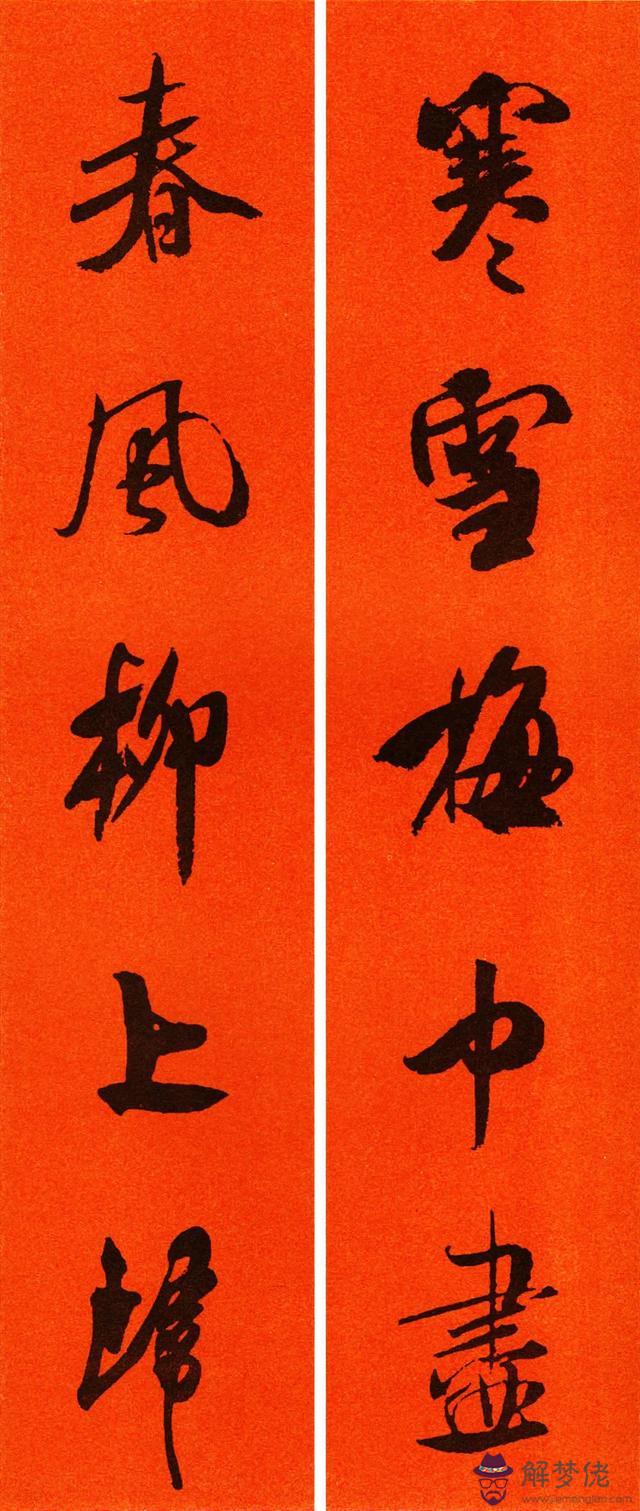 寒雪梅中盡
春風柳上歸
解梦佬
www.jiemenglao.com